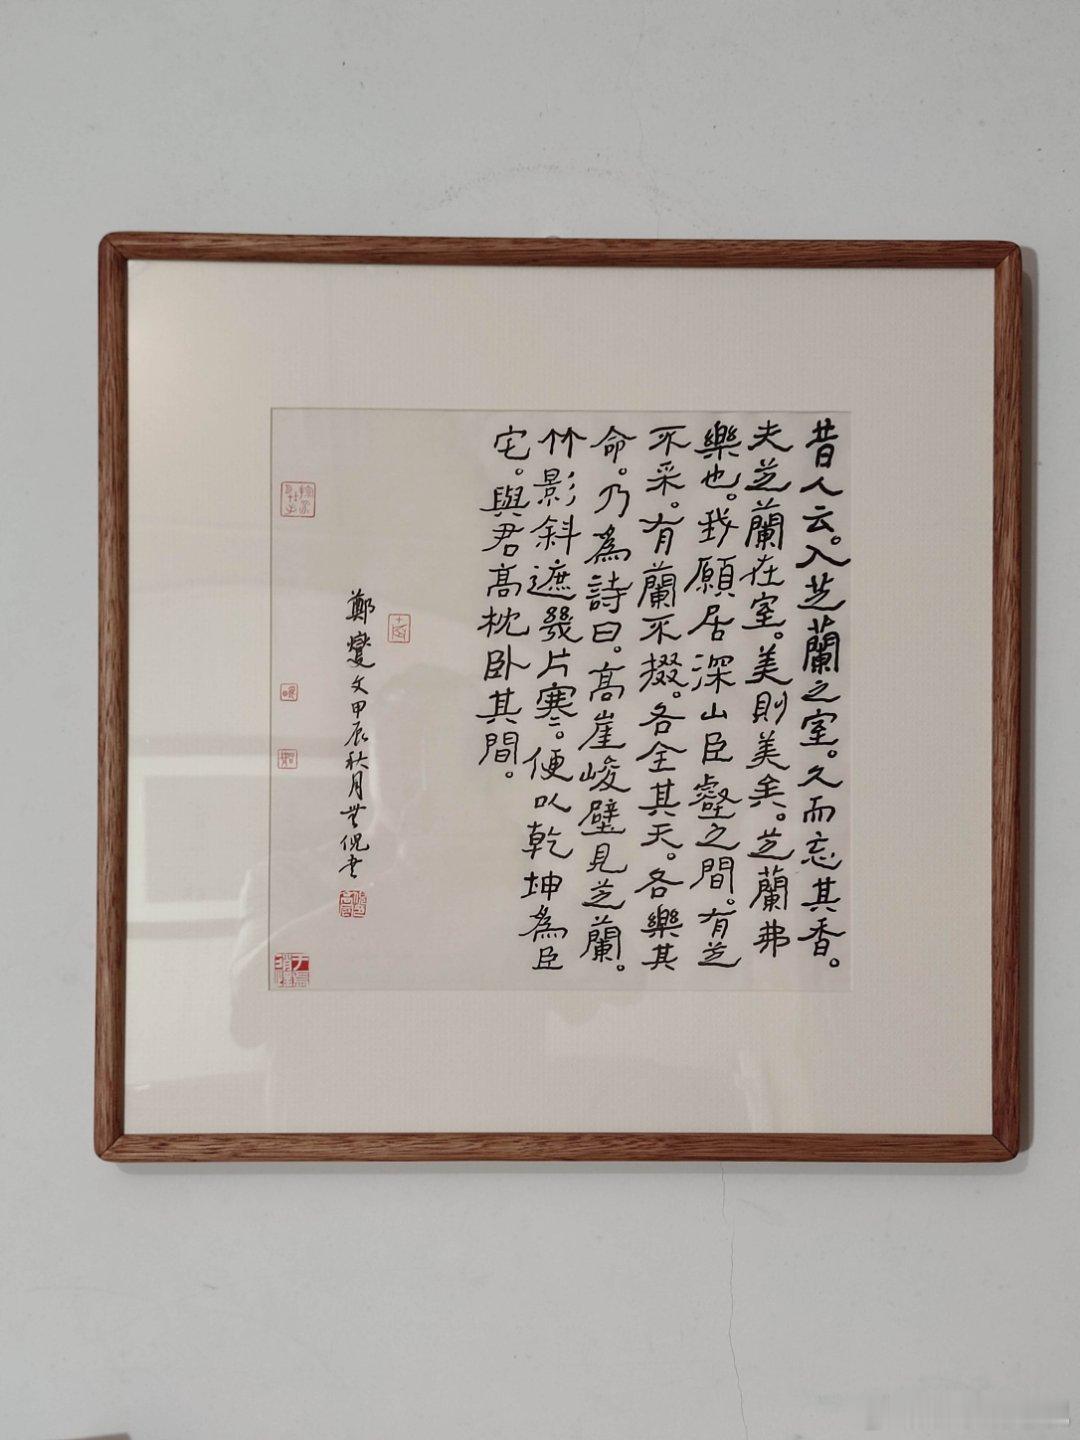 昔人云。入芝蘭之室。久而忘其香。
夫芝蘭在室。美則美矣。芝蘭弗
樂也。我願居深山巨壑之間。有芝
不采。有蘭不掇。各全其天。各樂其
命。乃為詩曰。高崖峻壁見芝蘭。
竹影斜遮幾片寒。便以乾坤為巨
宅。與君高枕卧其間。
鄭燮文甲辰秋月倪書